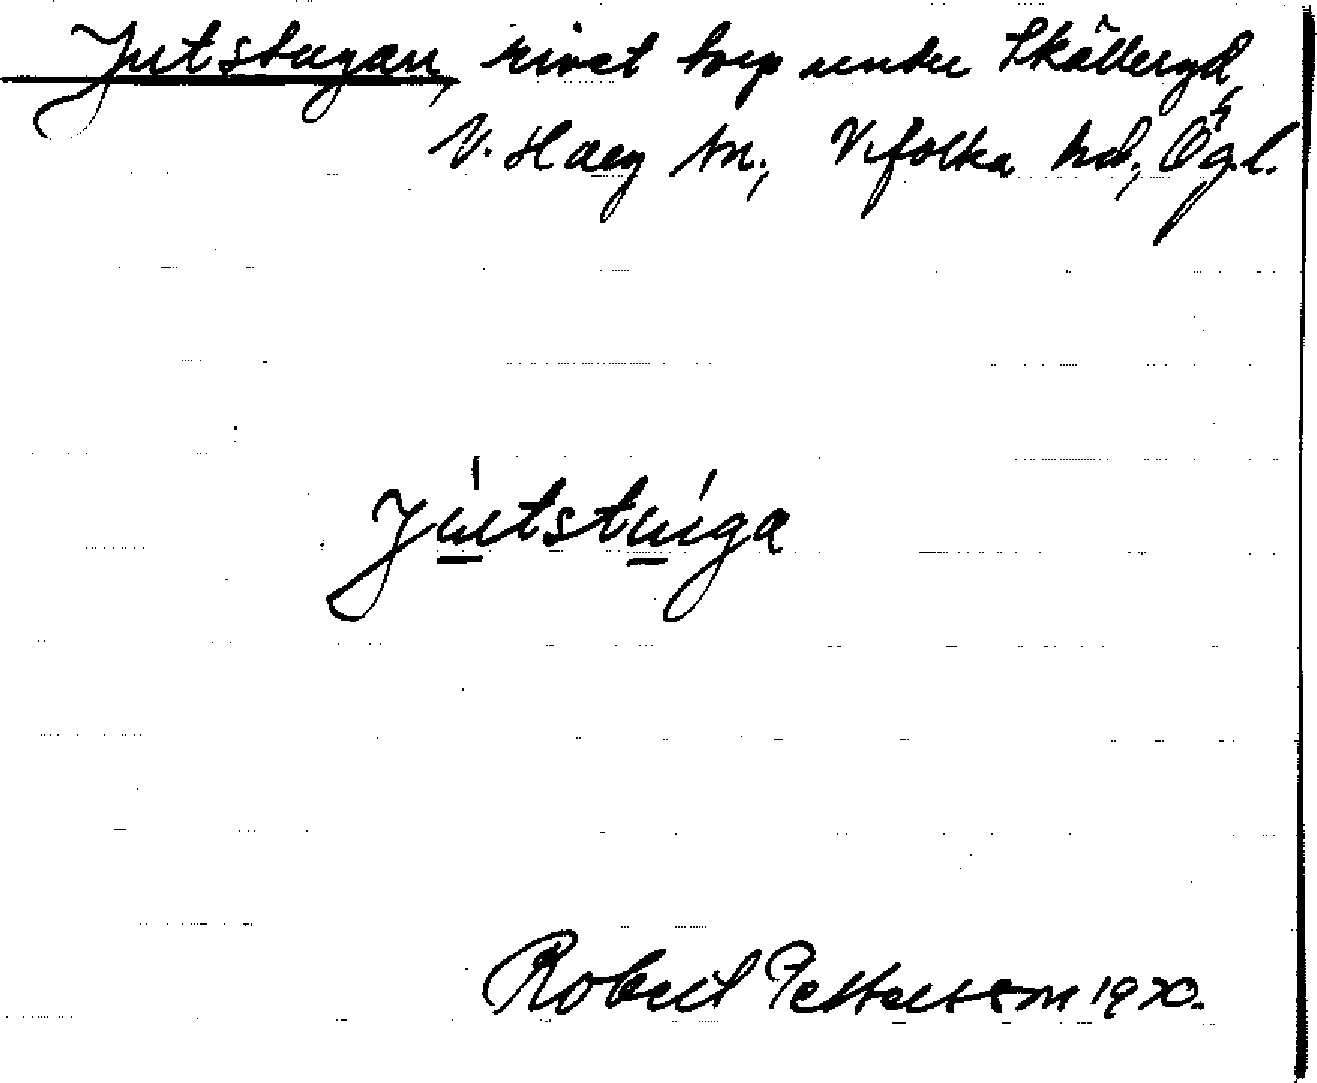 Jutstugan, rivet torp under Skälleryd,
V. Harg sn., Vifolka hd., Ögl.
Jútstúga
Robert Pettersson 1970.